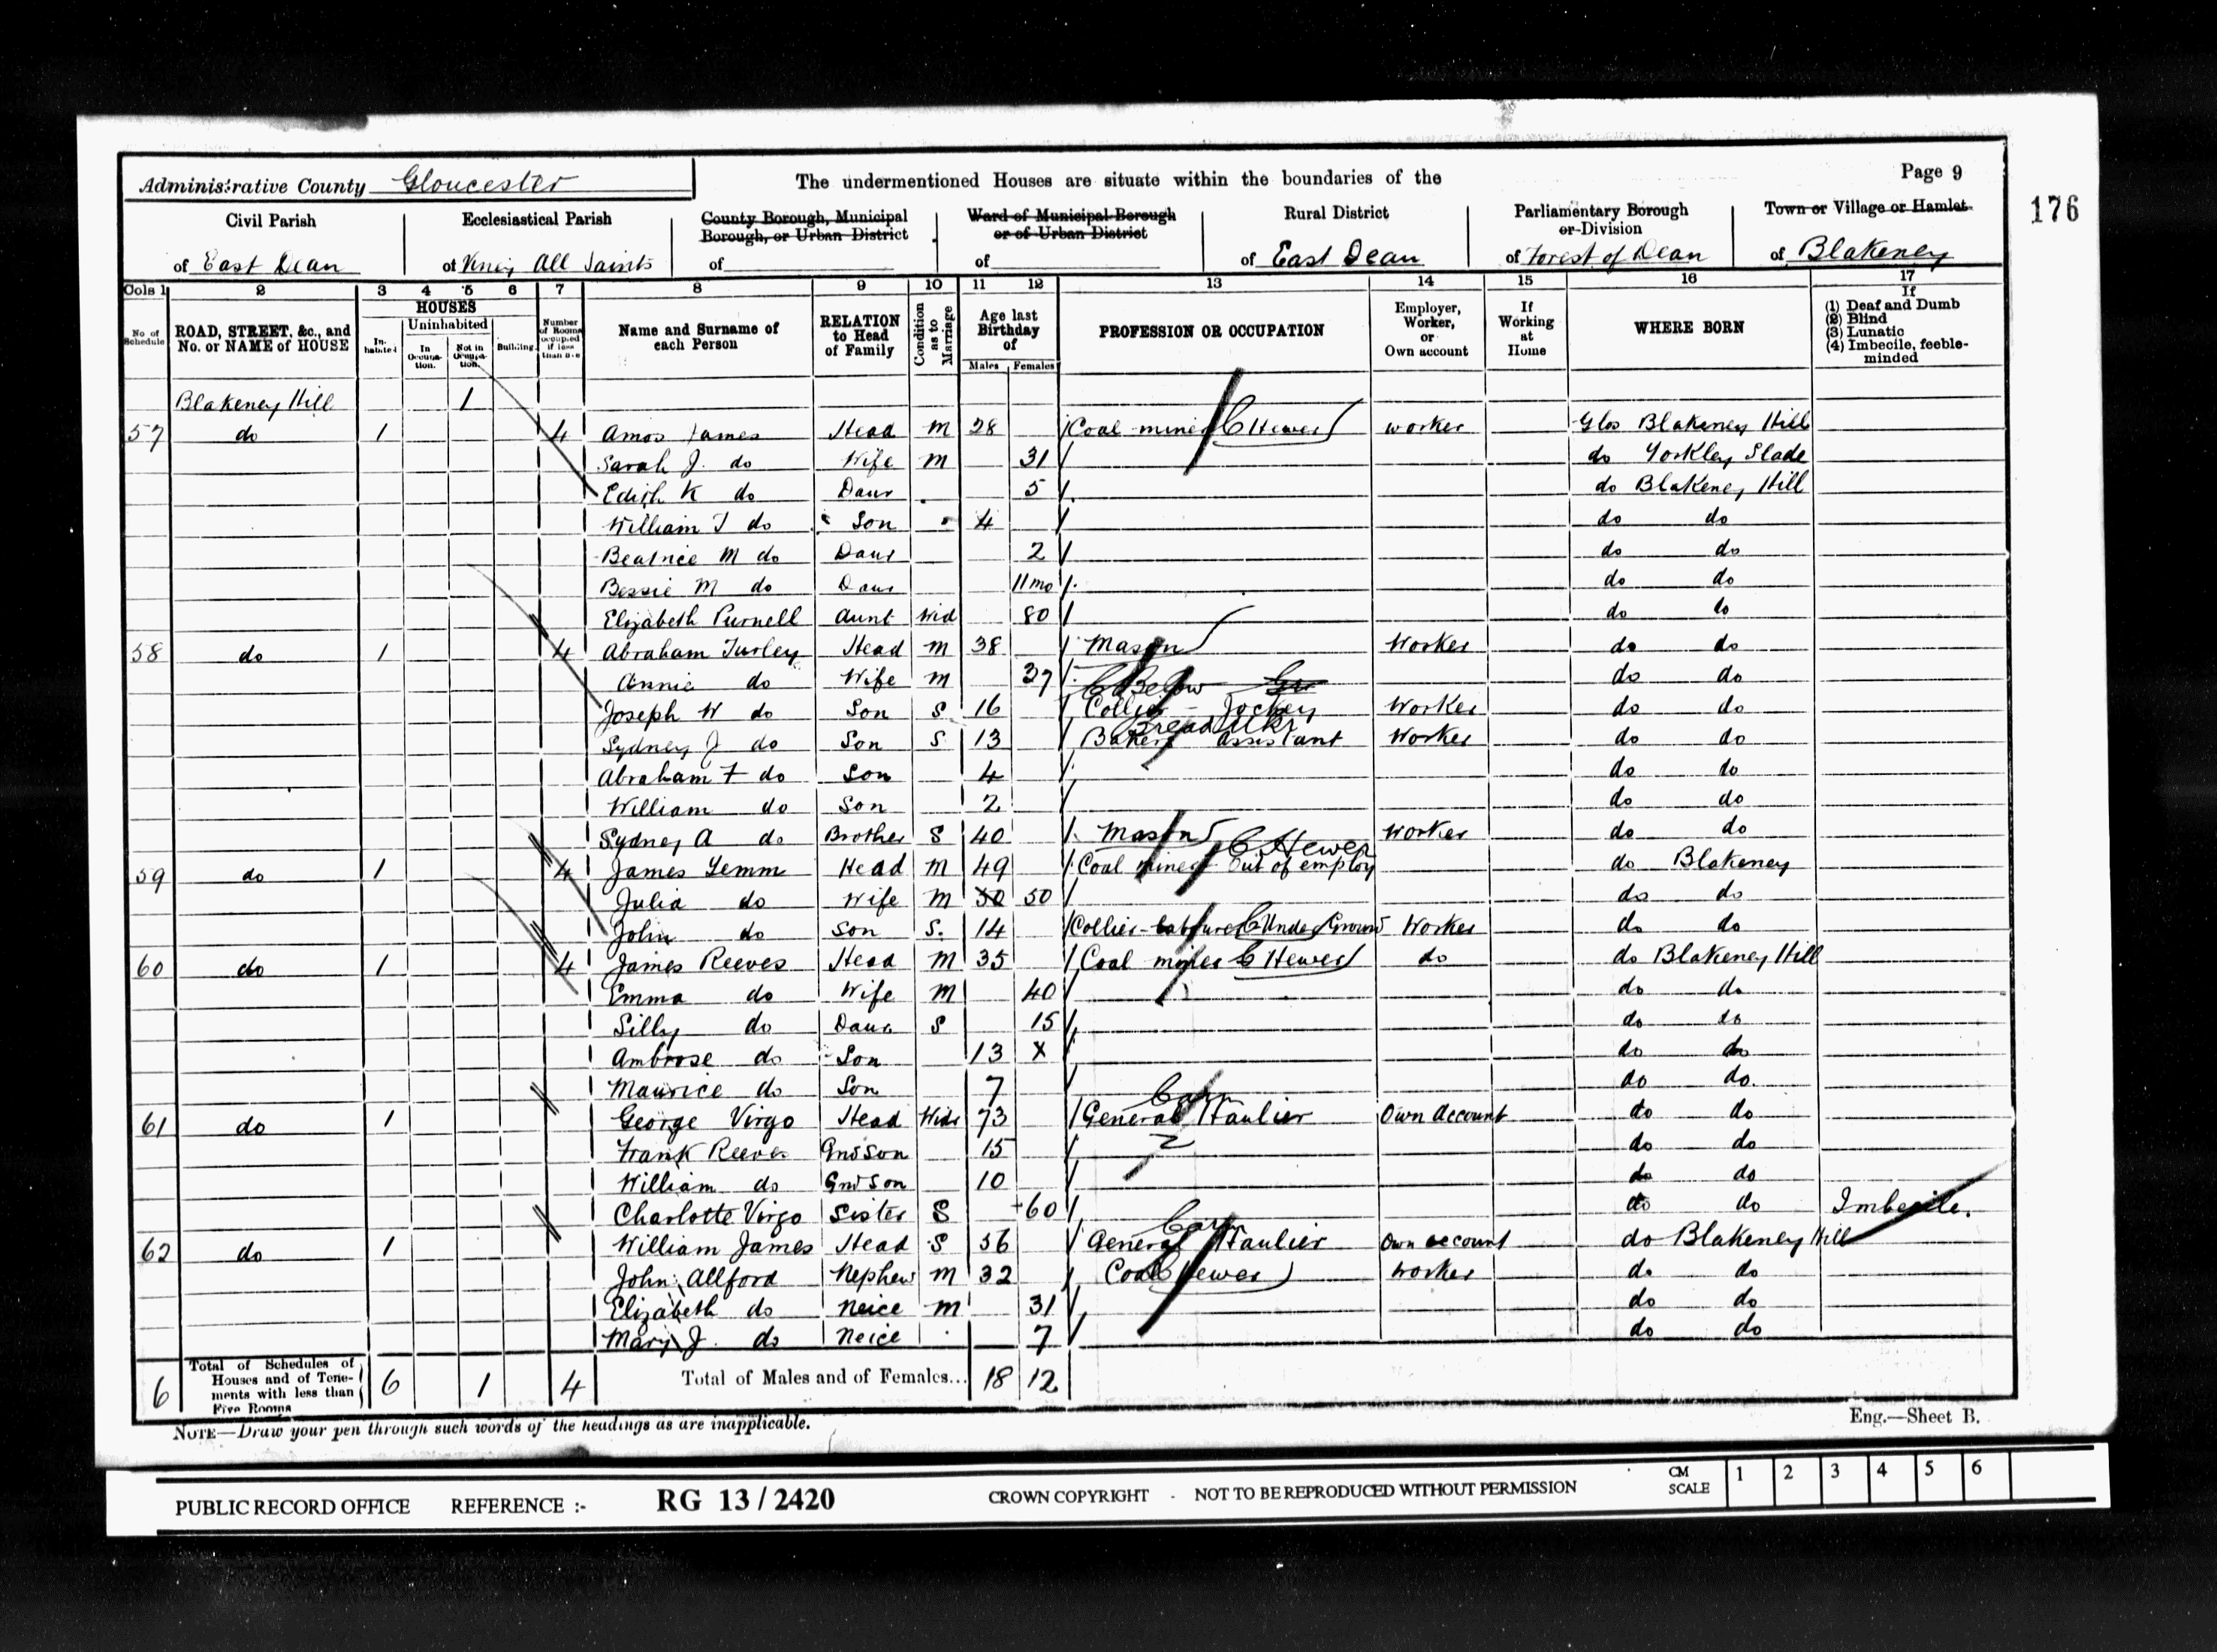 Administrative County Gloucester
The undermentioned Houses are situate within the boundaries of the
Page 9
176
Civil Parish
of East Dean
Ecclesiastical Parish
of All Saints
County Borough, Municipal Borough, or Urban District
of
Ward of Municipal Borough or of Urban District
of
Rural District
of East Dean
Parliamentary Borough or Division
of Forest of Dean
Town or Village or Hamlet
of Blakeney
Cols 1 2 3 4 5 6 7 8 9 10 11 12 13 14 15 16 17
No of Schedule
ROAD, STREET, &c., and No. or NAME of HOUSE
HOUSES
Inhabited
Uninhabited
In Occupation.
Not in Occupation.
Building
Number of Rooms occupied if less than five
Name and Surname of each Person
RELATION to Head of Family
Condition as to Marriage
Age last Birthday of
Males Females
PROFESSION OR OCCUPATION
Employer, Worker, or Own account
If Working at Home
WHERE BORN
If
(1) Deaf and Dumb
(2) Blind
(3) Lunatic
(4) Imbecile, feeble-minded
Blakeney Hill 1
57 do 1 4 Amos James Head M 28 Coal miner C Hewer worker Glos Blakeney Hill
Sarah J. do Wife M 31 do Yorkley Slade
Edith K do Daur 5 do Blakeney Hill
William T do Son 4 do do
Beatrice M do Daur 2 do do
Bessie M do Daur 11mo do do
Elizabeth Purnell Aunt Wid 80 do do
58 do 1 4 Abraham Turley Head M 38 Mason Worker do do
Annie do Wife M 37 do do
C Below
Joseph W do Son S 16 Collier - Jockey Worker do do
Bread Mkr
Sydney J do Son S 13 Bakers assistant Worker do do
Abraham F do Son 4 do do
William do Son 2 do do
Sydney A do Brother S 40 Mason Worker do do
C Hewer
59 do 1 4 James Lemm Head M 49 Coal miner Out of employ do Blakeney
Julia do Wife M 50 50 do do
John do Son S. 14 Collier-Labourer C Under Ground Worker do do
60 do 1 4 James Reeves Head M 35 Coal miner C Hewer do do Blakeney Hill
Emma do Wife M 40 do do
Lilly do Daur S 15 do do
Ambrose do Son 13 X do do
Maurice do Son 7 do do.
61 do 1 George Virgo Head Widr 73 General Haulier Own account do do
Frank Reeves Gndson 15 do do
William do Gndson 10 do do
Charlotte Virgo Sister S 60 do do Imbecile.
62 do 1 William James Head S 56 General Haulier Own account do Blakeney Hill
John Allford Nephew M 32 Coal Hewer Worker do do
Elizabeth do Neice M 31 do do
Mary J. do Neice 7 do do
6 Total of Schedules of Houses and of Tenements with less than Five Rooms 6 1 4 Total of Males and of Females... 18 12
NOTE—Draw your pen through such words of the headings as are inapplicable.
Eng.—Sheet B.
PUBLIC RECORD OFFICE REFERENCE :- RG 13 / 2420 CROWN COPYRIGHT - NOT TO BE REPRODUCED WITHOUT PERMISSION
CM SCALE 1 2 3 4 5 6